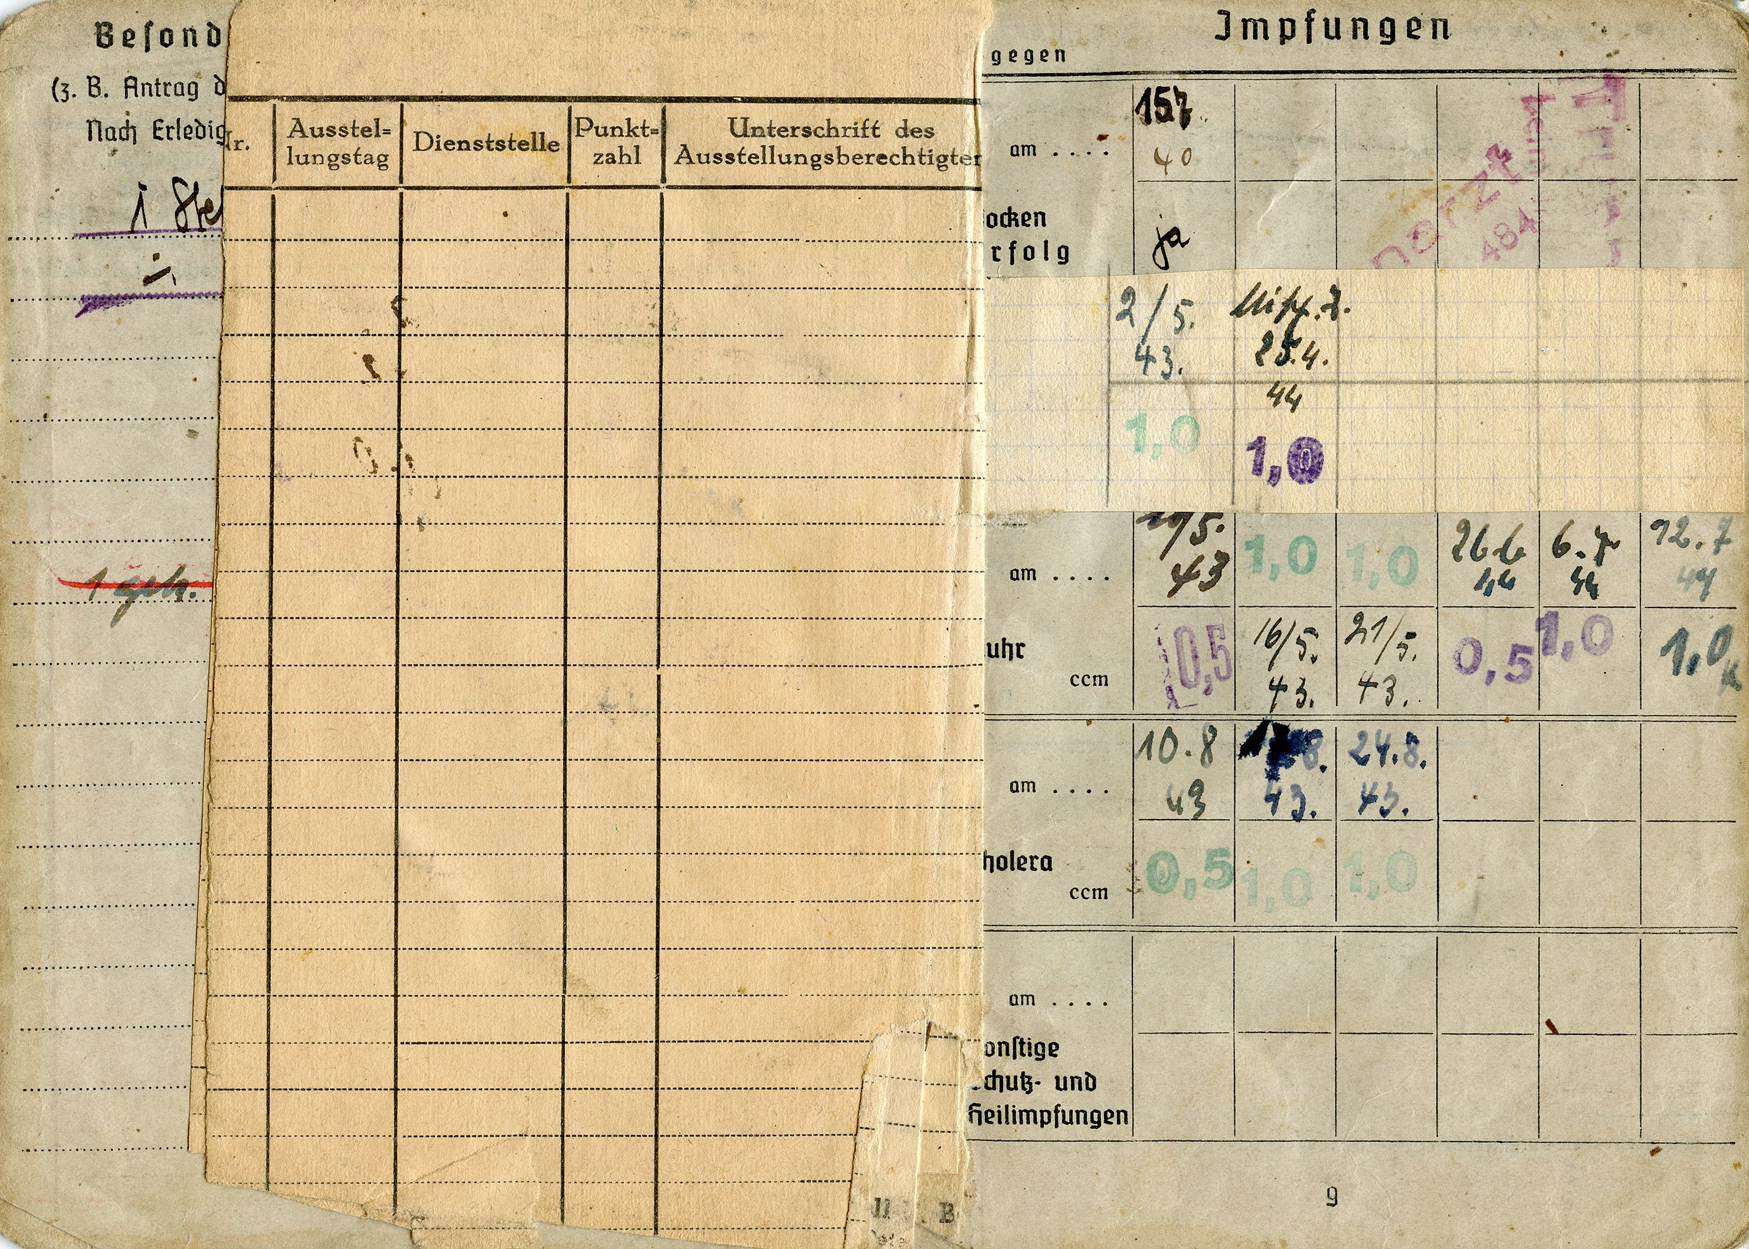 Besond
(z. B. Antrag d
Nach Erledig
1
1 geh.
r.
Ausstel=
lungstag
Dienststelle
Punkt=
zahl
Unterschrift des
Ausstellungsberechtigten
Impfungen
gegen
am . . . .
157
40
ocken
rfolg
ja
narzt
484
2/5.
43.
25.4.
44
1,0
1,0
am . . . .
19/5.
43
1,0
1,0
26 6
44
6. 7
44
12. 7
44
uhr
ccm
0,5
16/5.
43.
21/5.
43.
0,5
1,0
1,0
am . . . .
10. 8
43
8.
43.
24. 8.
43.
holera
ccm
0,5
1,0
1,0
am . . . .
onstige
chutz- und
Heilimpfungen
9
B